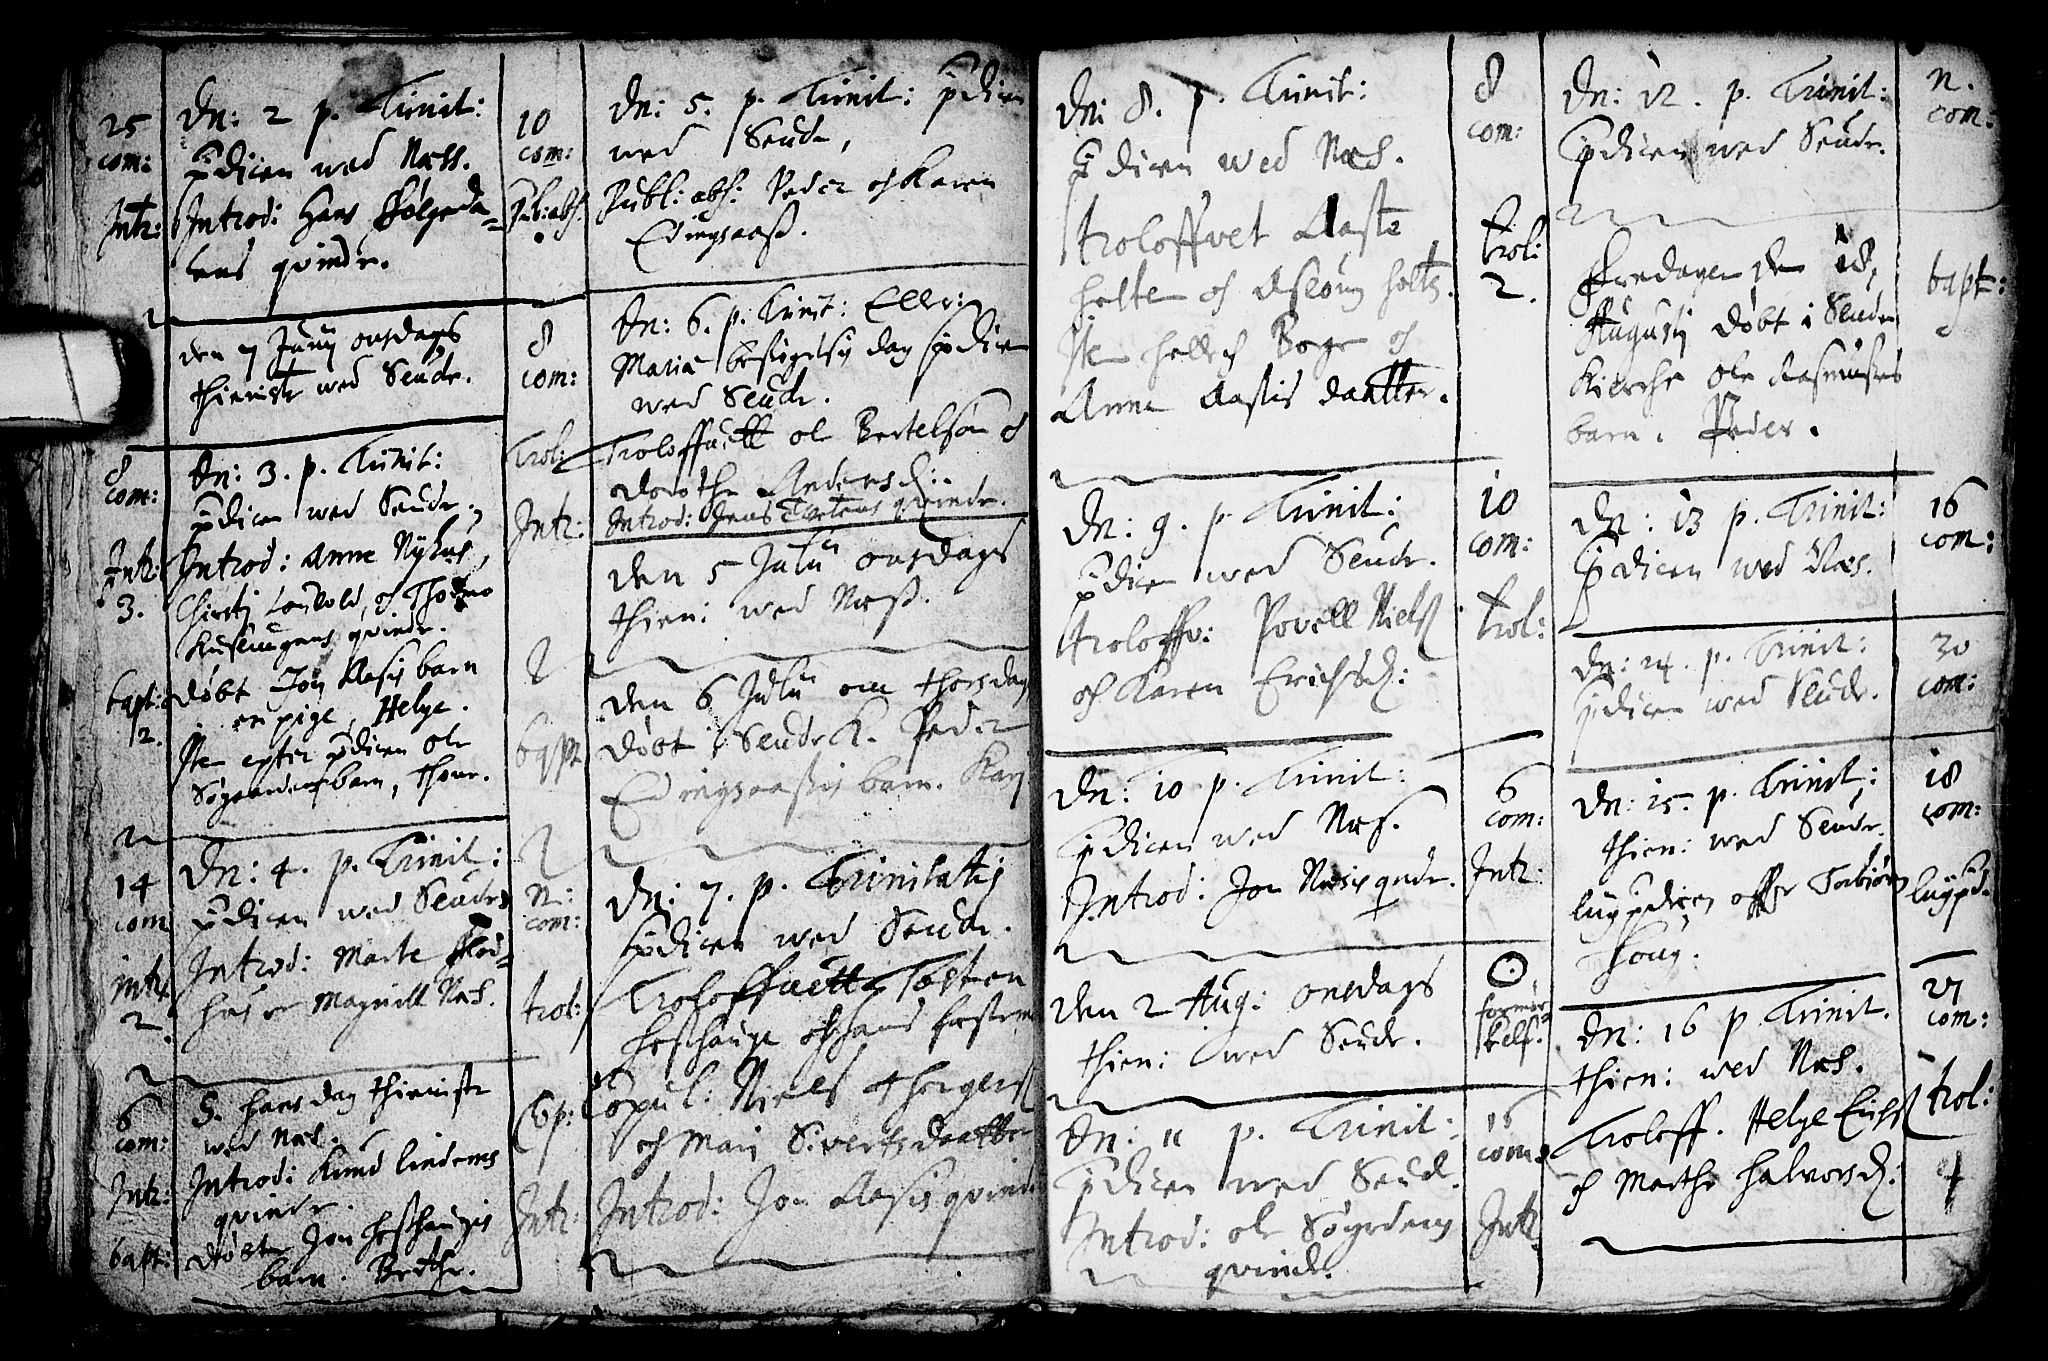 25
com:
Intr:
Dn: 2 p. Trinit:
prdicen wed Næss.
Introd: Hans Følgeda-
lens qvinde.
den 7 Junij onsdags
thieniste wed Seude.
8
com:
Intr:
3.
bapt:
2.
Dn: 3. p. Trinit:
prdicen wed Seude.
Introd: Anne Nyhus,
Kirstj, of Thormo
qvinde.
døbt Jon Aasis barn
en pige, Helge.
Jte epter prdicen ole
Søgaardens barn, Thone.
14
com
intr.
2.
Dn: 4. p. Trinit:
prdicen wed Seude
Introd: Marte
Magnill Næs.
6
com:
Intr:
bapt:
S. hans dag thieniste
wed Næs.
Introd: Knud lindems
qvinde.
døbte Jon hesthaugis
barn. Berthe.
10
com:
Pub: abs.
Dn: 5. p. Trinit: prdicen
wed Seude,
Publ: abs: Peder of Karen
Edingsaass.
8
com:
Trol:
Intr:
Dn: 6. p. Trinit: Eller
Mariæ besøgelsis dag prdicen
wed Seude.
Troloffuett ole Bertelsøn of
Dorothe Andersd:
Introd: Jens qvinde.
den 5 Julij onsdags
thien: wed Næss.
bapt
den 6 Julij om thorsdag
døbt i Seude K. Peder
Edingsaasis barn. Karj
n:
com:
trol:
Cop:
Intr:
Dn: 7. p. Trinitatis
prdicen wed Seude.
Troloffuett Tosten
hesthauge of hans festemø
Copul: Niels thorgerss
of Mari Siverts daatter
Introd: Jon Aasis qvinde
Dn: 8. p. Trinit:
prdicen wed Næs.
troloffvet Aaste
holtte of Asloug holts.
Jte Borge of
Anne Aastis daatter.
8
com:
trol:
2.
Dn: 9. p. Trinit:
prdicen wed Seude.
troloffv: Povell Nielss
of Karen Erichsd:
10
com:
trol:
Dn: 10 p. Trinit:
prdicen wed Næs.
Introd: Jon Næsis qvde.
6
com:
Intr:
den 2 Aug: onsdags
thien: wed Seude.
formør-
kels.
Dn: 11 p. Trinit:
prdicen wed Seud.
Introd: ole Søgrdens
qvinde.
16
com:
Intr.
Dn: 12. p. Trinit:
prdicen wed Seude.
n.
com:
Fredagen den 18,
Augustj døbt i Seude
Kierche ole Rasmuses
barn. Peder.
bapt:
Dn: 13 p. Trinit:
prdicen wed Næs.
16
com:
Dn: 14. p. Trinit:
prdicen wed Seude.
30
com:
Dn: 15. p. Trinit:
thien: wed Seude.
liigprdicen offr Torbiørn
houg.
18
com:
liigprd.
Dn: 16 p. Trinit.
thien: wed Næs.
Troloff. Helge Erichss
of Marthe halvorsd:
27
com:
trol: